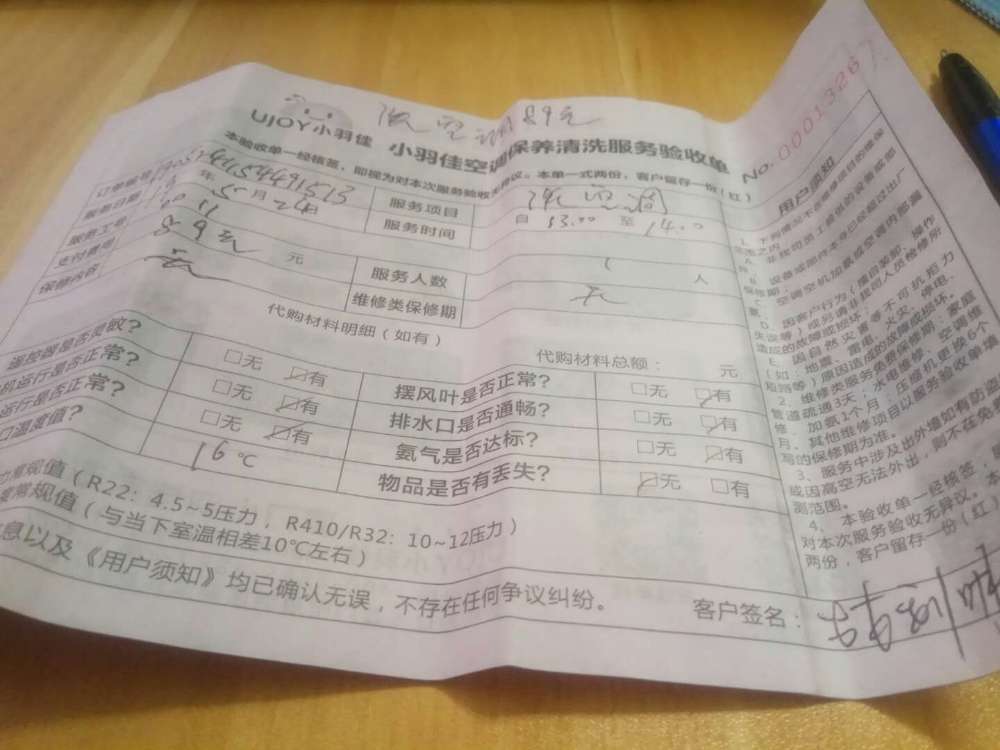 UJOY小羽佳 小羽佳空调保养清洗服务验收单 No.00013267
本验收单一经核签,即视为对本次服务验收无异议。本单一式两份,客户留存一份(红)
订单编号
服务项目
服务日期 年 月
服务时间 自 13:00 至 14:00
服务工号
支付费用 89元 元
服务人数 1 人
保修内容 无
维修类保修期 无
代购材料明细(如有)
代购材料总额: 元
遥控器是否灵敏? □无 ☑有
摆风叶是否正常? □无 ☑有
机运行是否正常? □无 ☑有
排水口是否通畅? □无 ☑有
运行是否正常? □无 ☑有
氨气是否达标? □无 ☑有
口温度值? 16℃
物品是否有丢失? ☑无 □有
力常规值(R22:4.5~5压力,R410/R32:10~12压力)
度常规值(与当下室温相差10℃左右)
息以及《用户须知》均已确认无误,不存在任何争议纠纷。
客户签名:
用户须知
1、下列情况不在保修项目的保修
范围之内:
A、非我司员工销售的设备或部
件。
B、设备或部件本身已经超过出厂
保修期。
C、空调空机加氨或空调内部漏
氨。
D、因客户行为(擅自装卸、操作
失误等)或另请非我司人员检修所
造成的故障或损坏。
E、因自然灾害等不可抗拒力
(如:地震、雷电、火灾、停电、
2、维修类服务免费保修期:家庭
管道疏通3天,水电维修、空调维
修、加氨1个月,压缩机更换6个
月,其他维修项目以服务验收单填
写的保修期为准。
3、服务中涉及出外墙如有防盗
或因高空无法外出,则不在免
测范围。
4、本验收单一经核签,
对本次服务验收无异议。本
两份,客户留存一份(红)